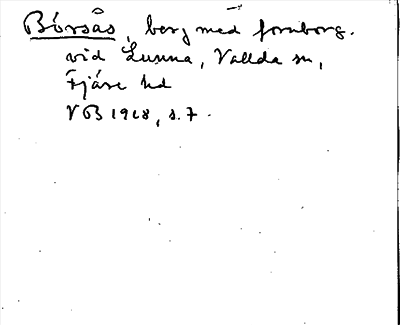 Börsås, berg med fornborg.
vid Lunna, Vallda sn,
Fjäre hd
VB 1918, s. 7.